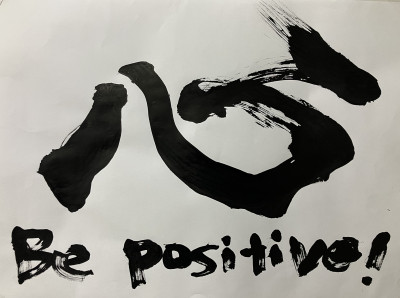 心
Be positive!